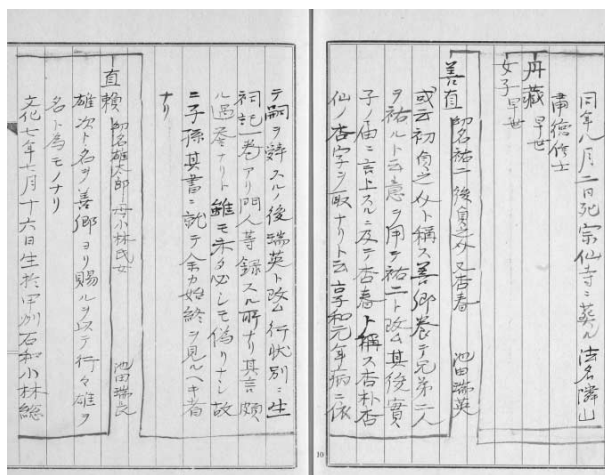 同年八月二日死宗仙寺ニ葬ル法名隣山
甫德修士
丹藏 早世
女子 早世
善直 卽名祐二後貞之介又杏春 池田瑞英
或云初貞之介ト稱ス善卿養テ兄弟二人
ヲ祐ルト云意ヲ用テ祐二ト改ム其後實
子ノ由ニ言上スルニ及テ杏春ト稱ス杏朴杏
仙ノ杏字ヲ取ナリト云享和元年病ニ依
テ嗣ヲ辭スルノ後瑞英ト改ム行狀別ニ生
祠記一卷アリ門人等錄スル所ナリ其言頗
ル過譽ナリト雖モ未タ必シモ僞リナシ故
ニ子孫其書ニ就テ全カ始終ヲ見ルヘキ者
ナリ
直賴 卽名雄太郎 母小林氏女 池田瑞長
雄次ト名ヲ善鄉ヨリ賜ルヲ以テ行々雄ヲ
名ト爲モノナリ
文化七年七月十六日生於甲州石和小林總
10